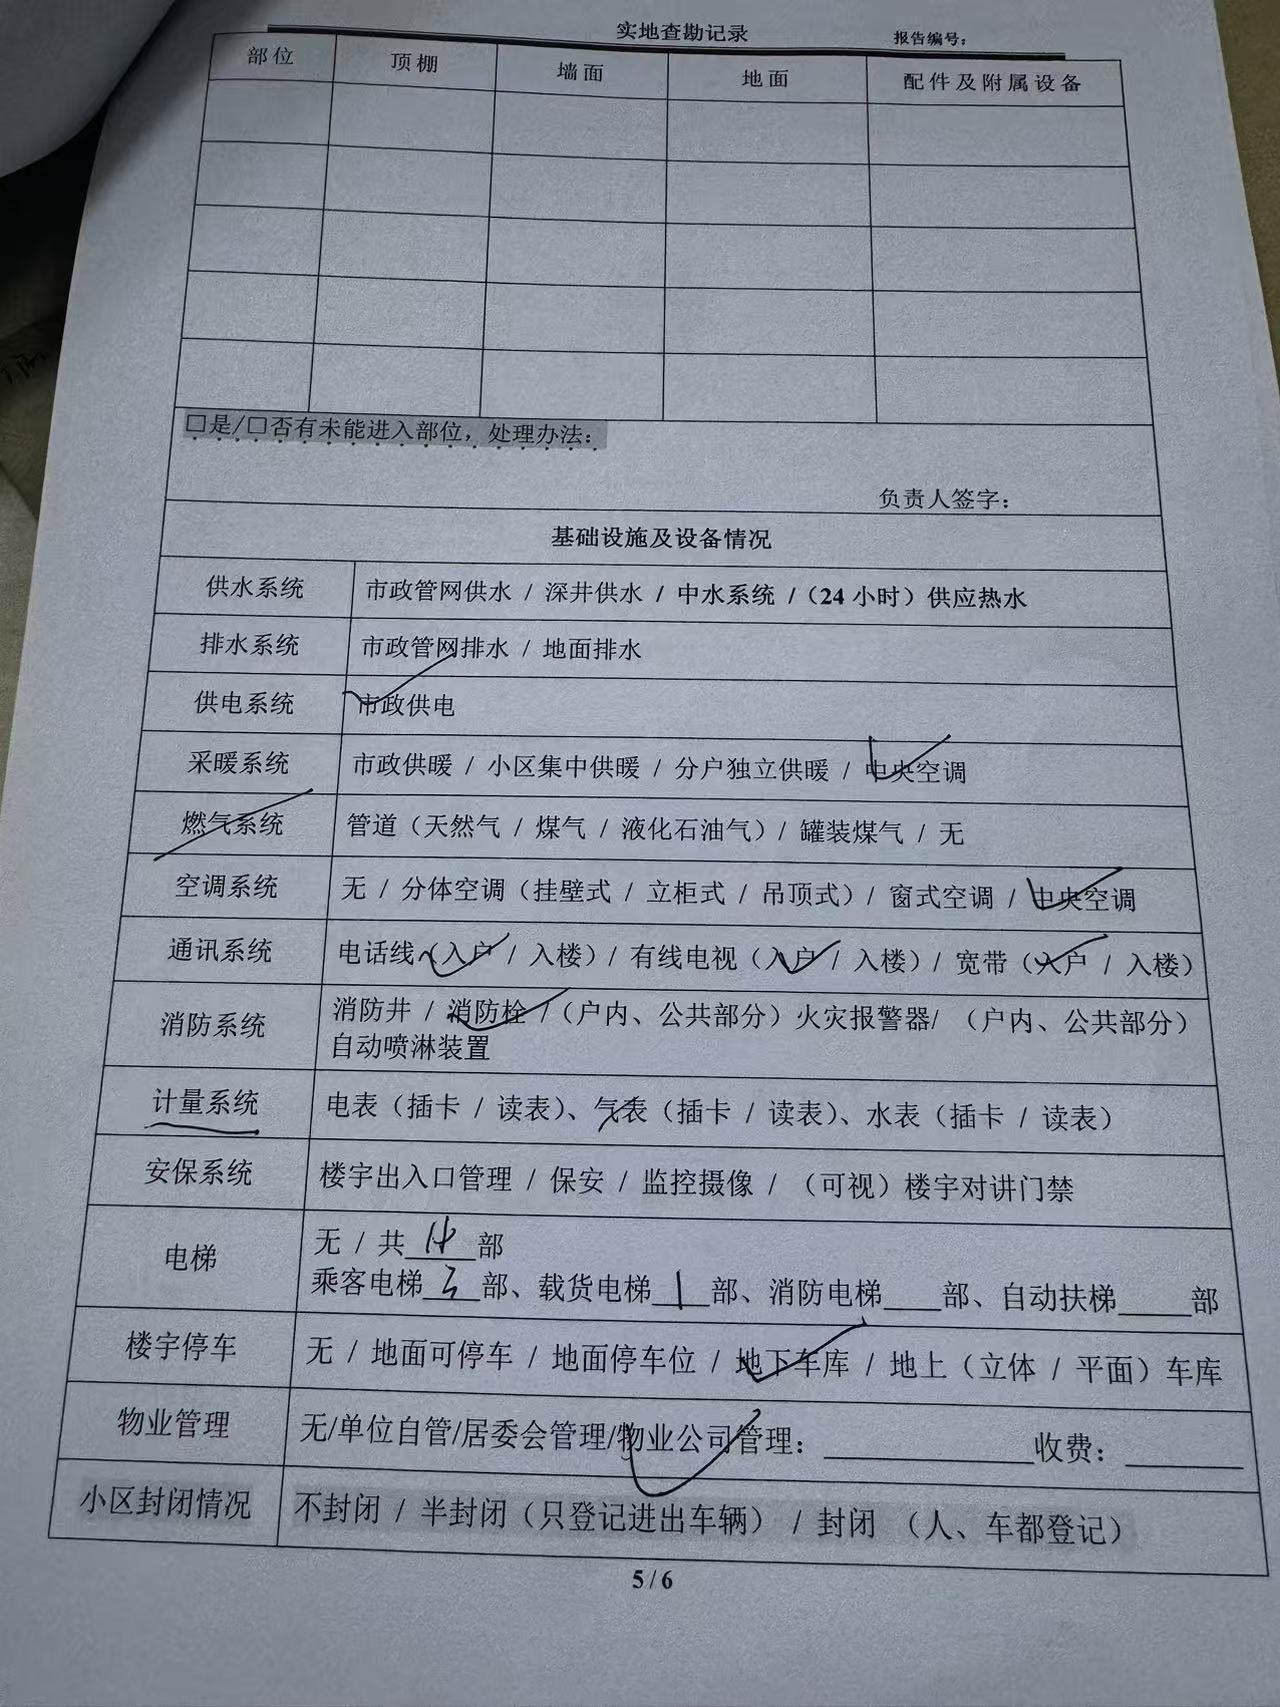 实地查勘记录 报告编号：
部位 顶棚 墙面 地面 配件及附属设备
□是/□否有未能进入部位，处理办法：
负责人签字：
基础设施及设备情况
供水系统 市政管网供水 / 深井供水 / 中水系统 /（24 小时）供应热水
排水系统 市政管网排水 / 地面排水
供电系统 市政供电
采暖系统 市政供暖 / 小区集中供暖 / 分户独立供暖 / 中央空调
燃气系统 管道（天然气 / 煤气 / 液化石油气）/ 罐装煤气 / 无
空调系统 无 / 分体空调（挂壁式 / 立柜式 / 吊顶式）/ 窗式空调 / 中央空调
通讯系统 电话线（入户 / 入楼）/ 有线电视（入户 / 入楼）/ 宽带（入户 / 入楼）
消防系统 消防井 / 消防栓 /（户内、公共部分）火灾报警器/ （户内、公共部分）
自动喷淋装置
计量系统 电表（插卡 / 读表）、气表（插卡 / 读表）、水表（插卡 / 读表）
安保系统 楼宇出入口管理 / 保安 / 监控摄像 / （可视）楼宇对讲门禁
电梯 无 / 共____部
乘客电梯 3 部、载货电梯 1 部、消防电梯____部、自动扶梯____部
楼宇停车 无 / 地面可停车 / 地面停车位 / 地下车库 / 地上（立体 / 平面）车库
物业管理 无/单位自管/居委会管理/物业公司管理：________收费：________
小区封闭情况 不封闭 / 半封闭（只登记进出车辆） / 封闭 （人、车都登记）
5 / 6